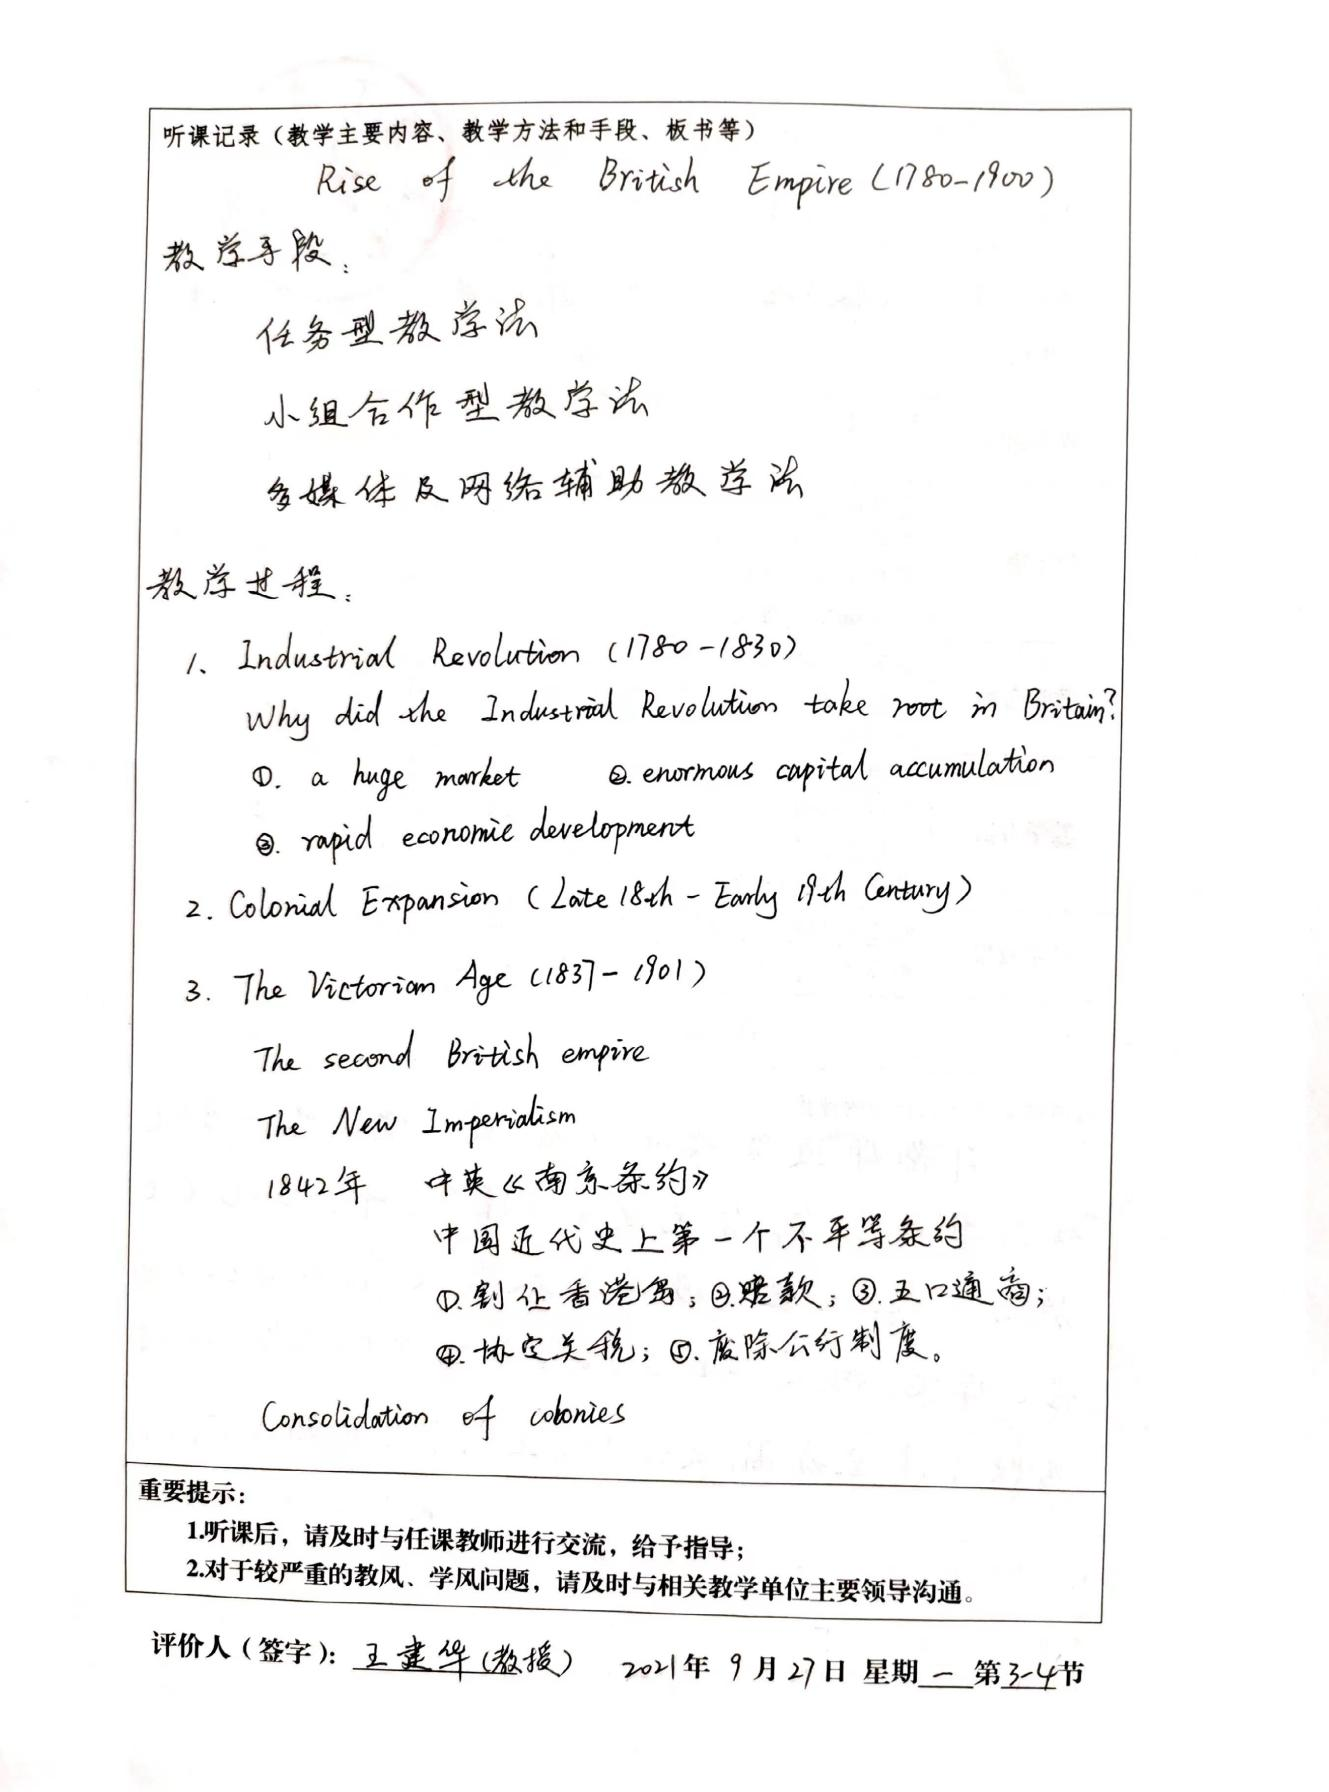 听课记录（教学主要内容、教学方法和手段、板书等）
Rise of the British Empire (1780-1900)
教学手段：
任务型教学法
小组合作型教学法
多媒体及网络辅助教学法
教学过程：
1、Industrial Revolution (1780-1830)
Why did the Industrial Revolution take root in Britain?
①. a huge market ②. enormous capital accumulation
③. rapid economic development
2. Colonial Expansion (Late 18th - Early 19th Century)
3. The Victorian Age (1837-1901)
The second British empire
The New Imperialism
1842年 中英《南京条约》
中国近代史上第一个不平等条约
①.割让香港岛；②.赔款；③.五口通商；
④.协定关税；⑤.废除公行制度。
Consolidation of colonies
重要提示：
1.听课后，请及时与任课教师进行交流，给予指导；
2.对于较严重的教风、学风问题，请及时与相关教学单位主要领导沟通。
评价人（签字）：王建华（教授） 2021年9月27日 星期一 第3-4节